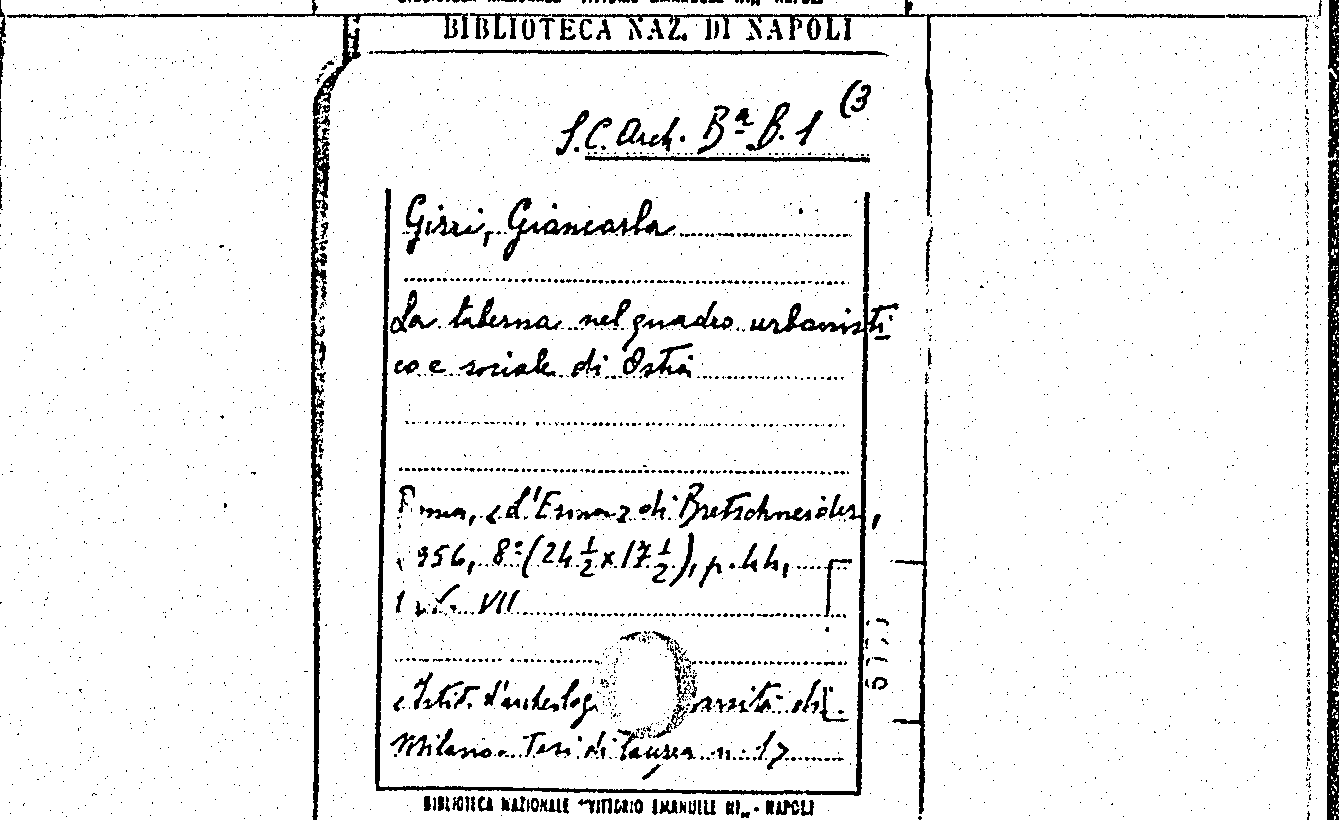 BIBLIOTECA NAZ. DI NAPOLI
(3
S.C. Arch. Bª B. 1
Girri, Giancarla
La taberna nel quadro urbanisti
co e social di Ostia
"L'Erma" di Bretschneider,
956, 8º (24 1/2 x 17 1/2), p. 44,
VII
Istit. d'archeolog rsità di
Milano. Tesi di laurea n. 17
5177
BIBLIOTECA NAZIONALE "VITTORIO EMANUELE III" - NAPOLI